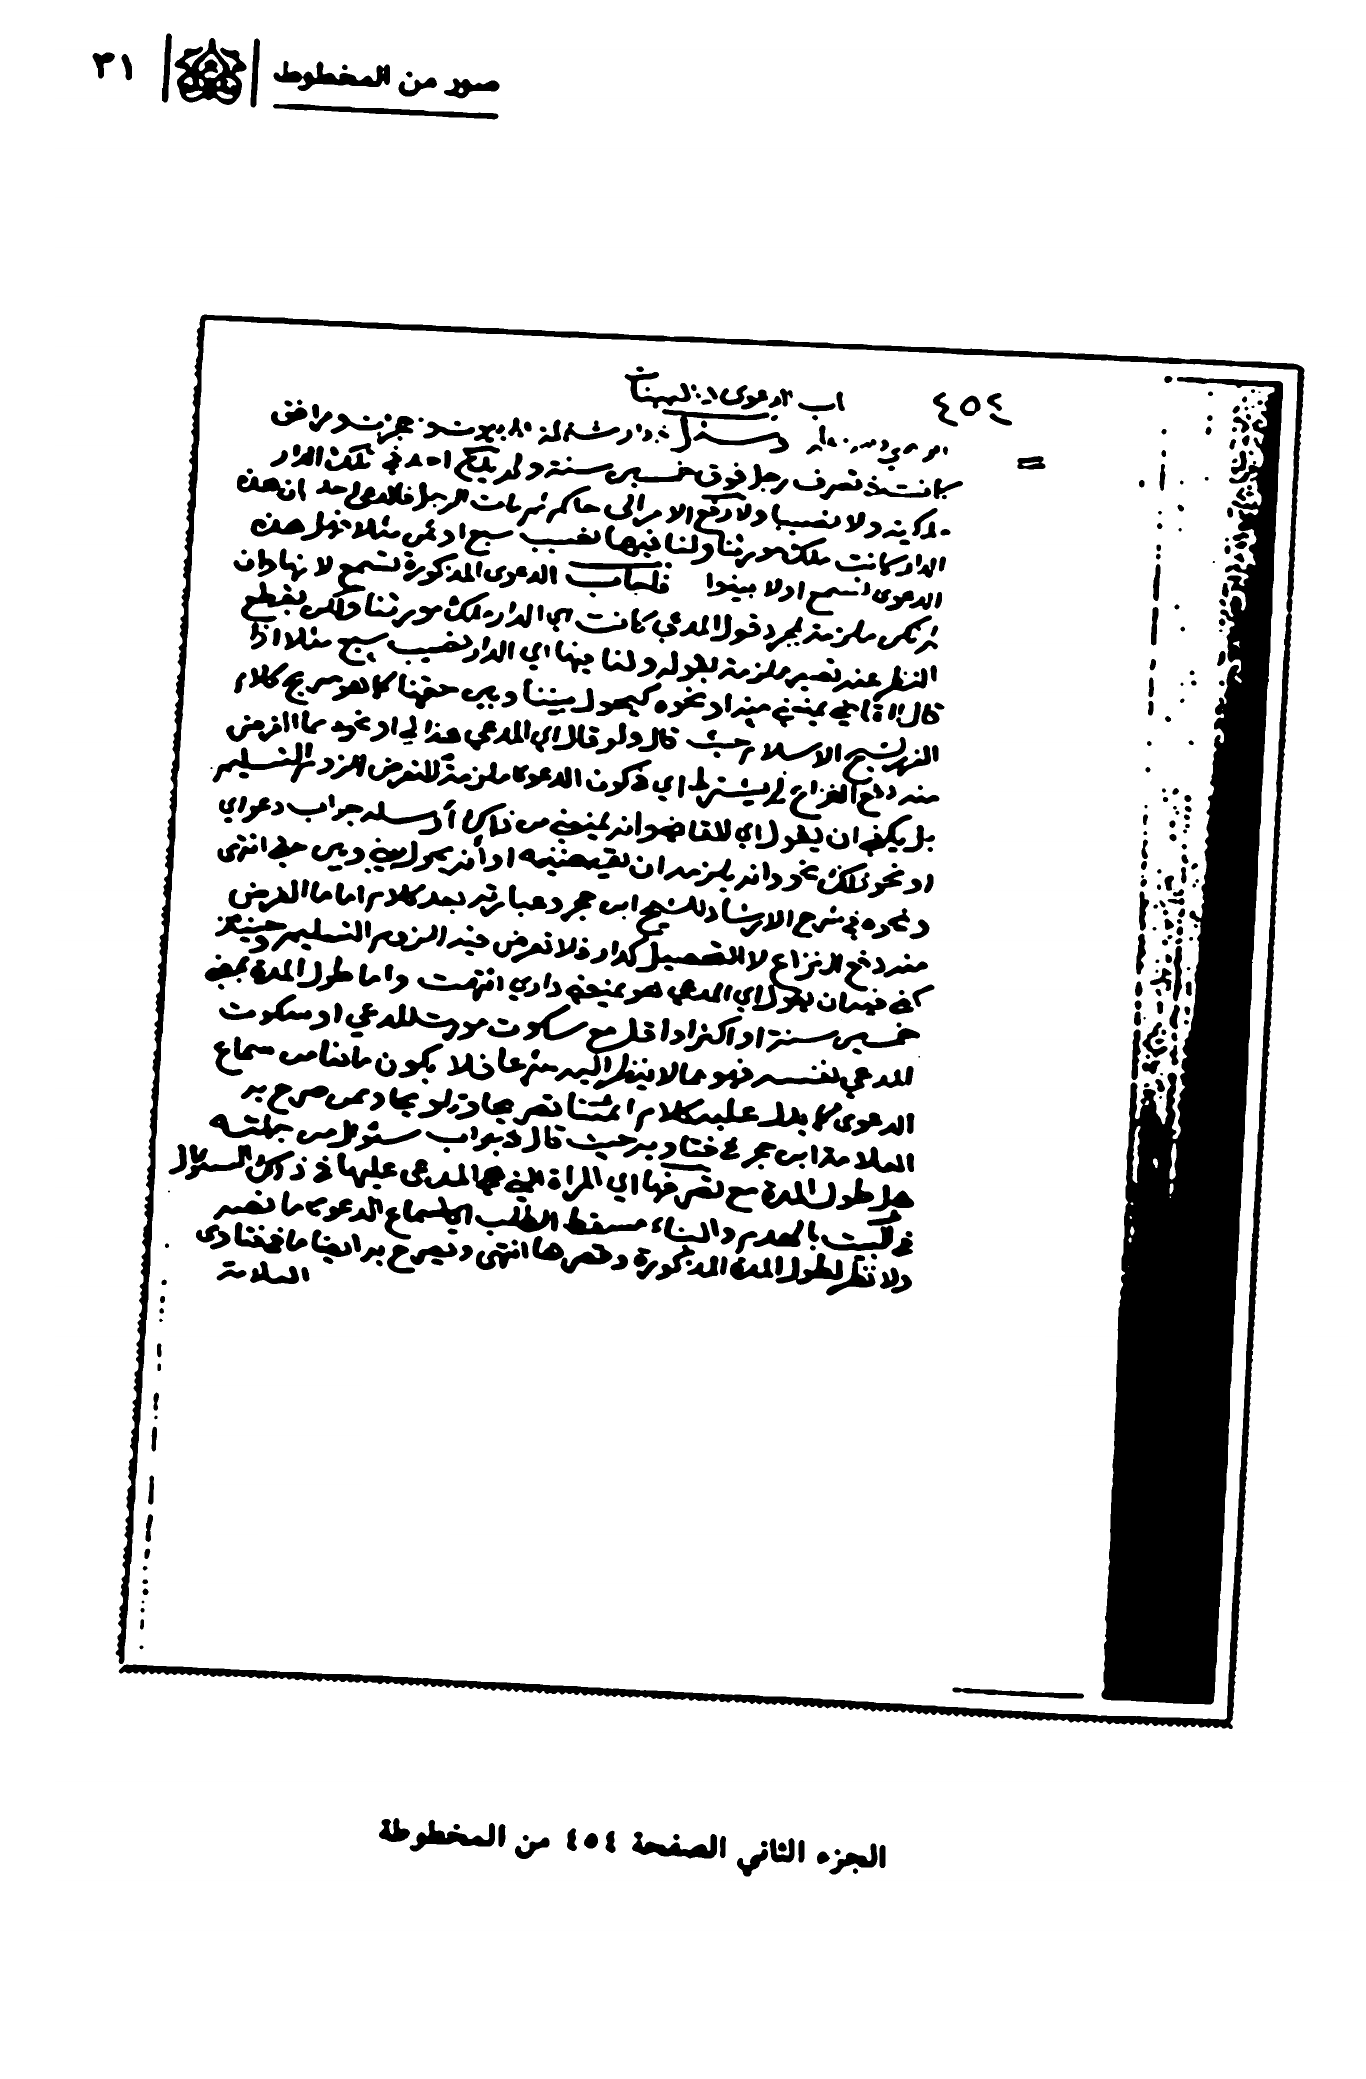 صور من المخطوط ٣١
٤٥٤ باب الدعوى والبينات
وسئل في دار
كانت في تصرف رجل فوق خمسين سنة ولم يدع احد في تلك الدار
ملكية ولا نصيبا ولا رفع الامر الى حاكم ثم مات الرجل فادعى احد ان هذه
الدار كانت ملك مورثنا ولنا فيها نصيب سبع او ثمن مثلا فهل هذه
الدعوى تسمع اولا بينوا فاجاب الدعوى المذكورة تسمع لانها وان
لم تكن ملزمة بمجرد قول المدعي كانت اي الدار ملك مورثنا ولكن بقطع
النظر عنه تصير ملزمة بقوله ولنا فيها اي الدار نصيب سبع مثلا اذا
قال للقاضي يمنعني منه او نحوه كيحول بيننا وبين حقنا كما هو صريح كلام
شيخ الاسلام حيث قال ولو قال اي المدعي هذا لي او نحوه مما الغرض
منه دفع النزاع لم يشترط اي في كون الدعوى ملزمة التعرض للزوم التسليم
بل يكفي ان يقول اي للقاضي وانه يمنعني من ذلك اسأله جواب دعواي
او نحو ذلك نحو وانه يلزمه ان يقبضنيه او أنه يحول بيني وبين حقي انتهى
ونحوه في شرح الارشاد للشيخ ابن حجر وعبارته بعد كلام اما ما الغرض
منه دفع النزاع لا التحصيل كدار فلا تعرض فيه للزوم التسليم وحينئذ
كفى فيه ان يقول اي المدعي هو يمنعني داري انتهت واما طول المدة بمضي
خمسين سنة او اكثر او اقل مع سكوت مورث المدعي او سكوت
المدعي بنفسه فهو مما لا ينظر اليه شرعا فلا يكون مانعا من سماع
الدعوى كما يدل عليه كلام ائمتنا تصريحا وتلويحا وممن صرح به
العلامة ابن حجر في فتاويه حيث قال في جواب سئوال من جملته
هل طول المدة مع تصرفها اي المراة التي هي المدعى عليها في ذلك السئوال
في البيت بالهدم والبناء مسقط الطلب اي لسماع الدعوى ما نصه
ولا نظر لطول المدة المذكورة وقصرها انتهى ويصرح به ايضا ما في فتاوى
العلامة
الجزء الثاني الصفحة ٤٥٤ من المخطوطة